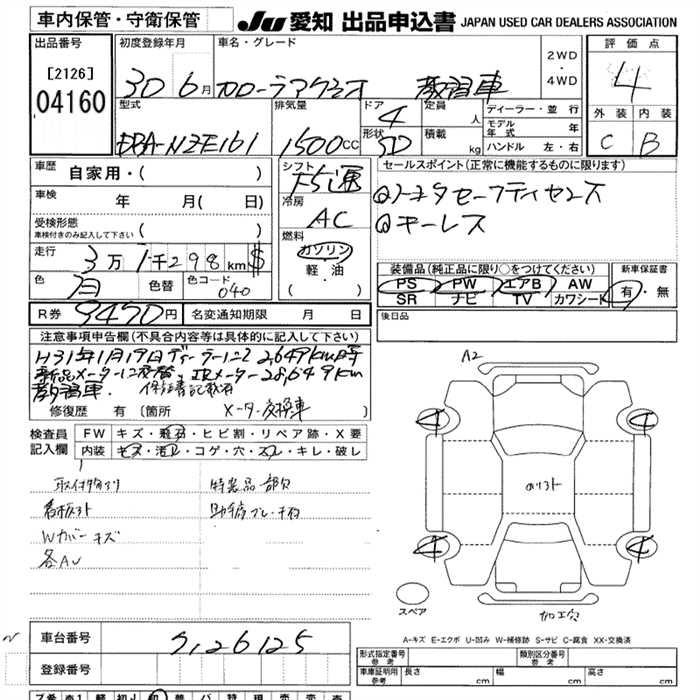 車内保管・守衛保管
JU 愛知 出品申込書 JAPAN USED CAR DEALERS ASSOCIATION
出品番号
[2126]
04160
初度登録年月
30 6月
車名・グレード
カローラアクシオ 教習車
2WD
・
4WD
評価点
4
外装 内装
C B
型式
DBA-NZE161
排気量
1500cc
ドア
4
形状
SD
定員
人
積載
kg
ディーラー・並行
モデル年式 年
ハンドル 左・右
車歴 自家用・( )
車検 年 月( 日)
受検形態
車検付きのみ記入して下さい ( )
走行 3万1千298km $
色 白 色替 色コード 040
R券 9490円 名変通知期限 月 日
シフト
F5速
冷房
AC
燃料
ガソリン
・
軽・油
( )
セールスポイント(正常に機能するものに限ります)
◎トヨタセーフティセンス
◎キーレス
装備品(純正品に限り○をつけてください)
PS PW エアB AW
SR ナビ TV カワシート
新車保証書
有・無
後日品
注意事項申告欄(不具合内容等は具体的に記入して下さい)
H31年1月19日ディーラーにて2,649km時
新品メーターに交替、旧メーター28,649km
教習車 保証書記載有
修復歴 有(箇所 メーター交換車 )
検査員
記入欄
FW キズ・飛石・ヒビ割・リペア跡・X要
内装 キズ・汚れ・コゲ・穴・スレ・キレ・破レ
取付物有り 特装品部欠
看板外ト 助手席ブレーキ有
Wカバーキズ
各AU
A2
4 4
4 4
スペア
加工穴
A-キズ E-エクボ U-凹み W-補修跡 S-サビ C-腐食 XX-交換済
車台番号 9126125
登録番号
形式指定番号
参考
類別区分番号
参考
車庫証明用
参考
長さ cm 幅 cm 高さ cm